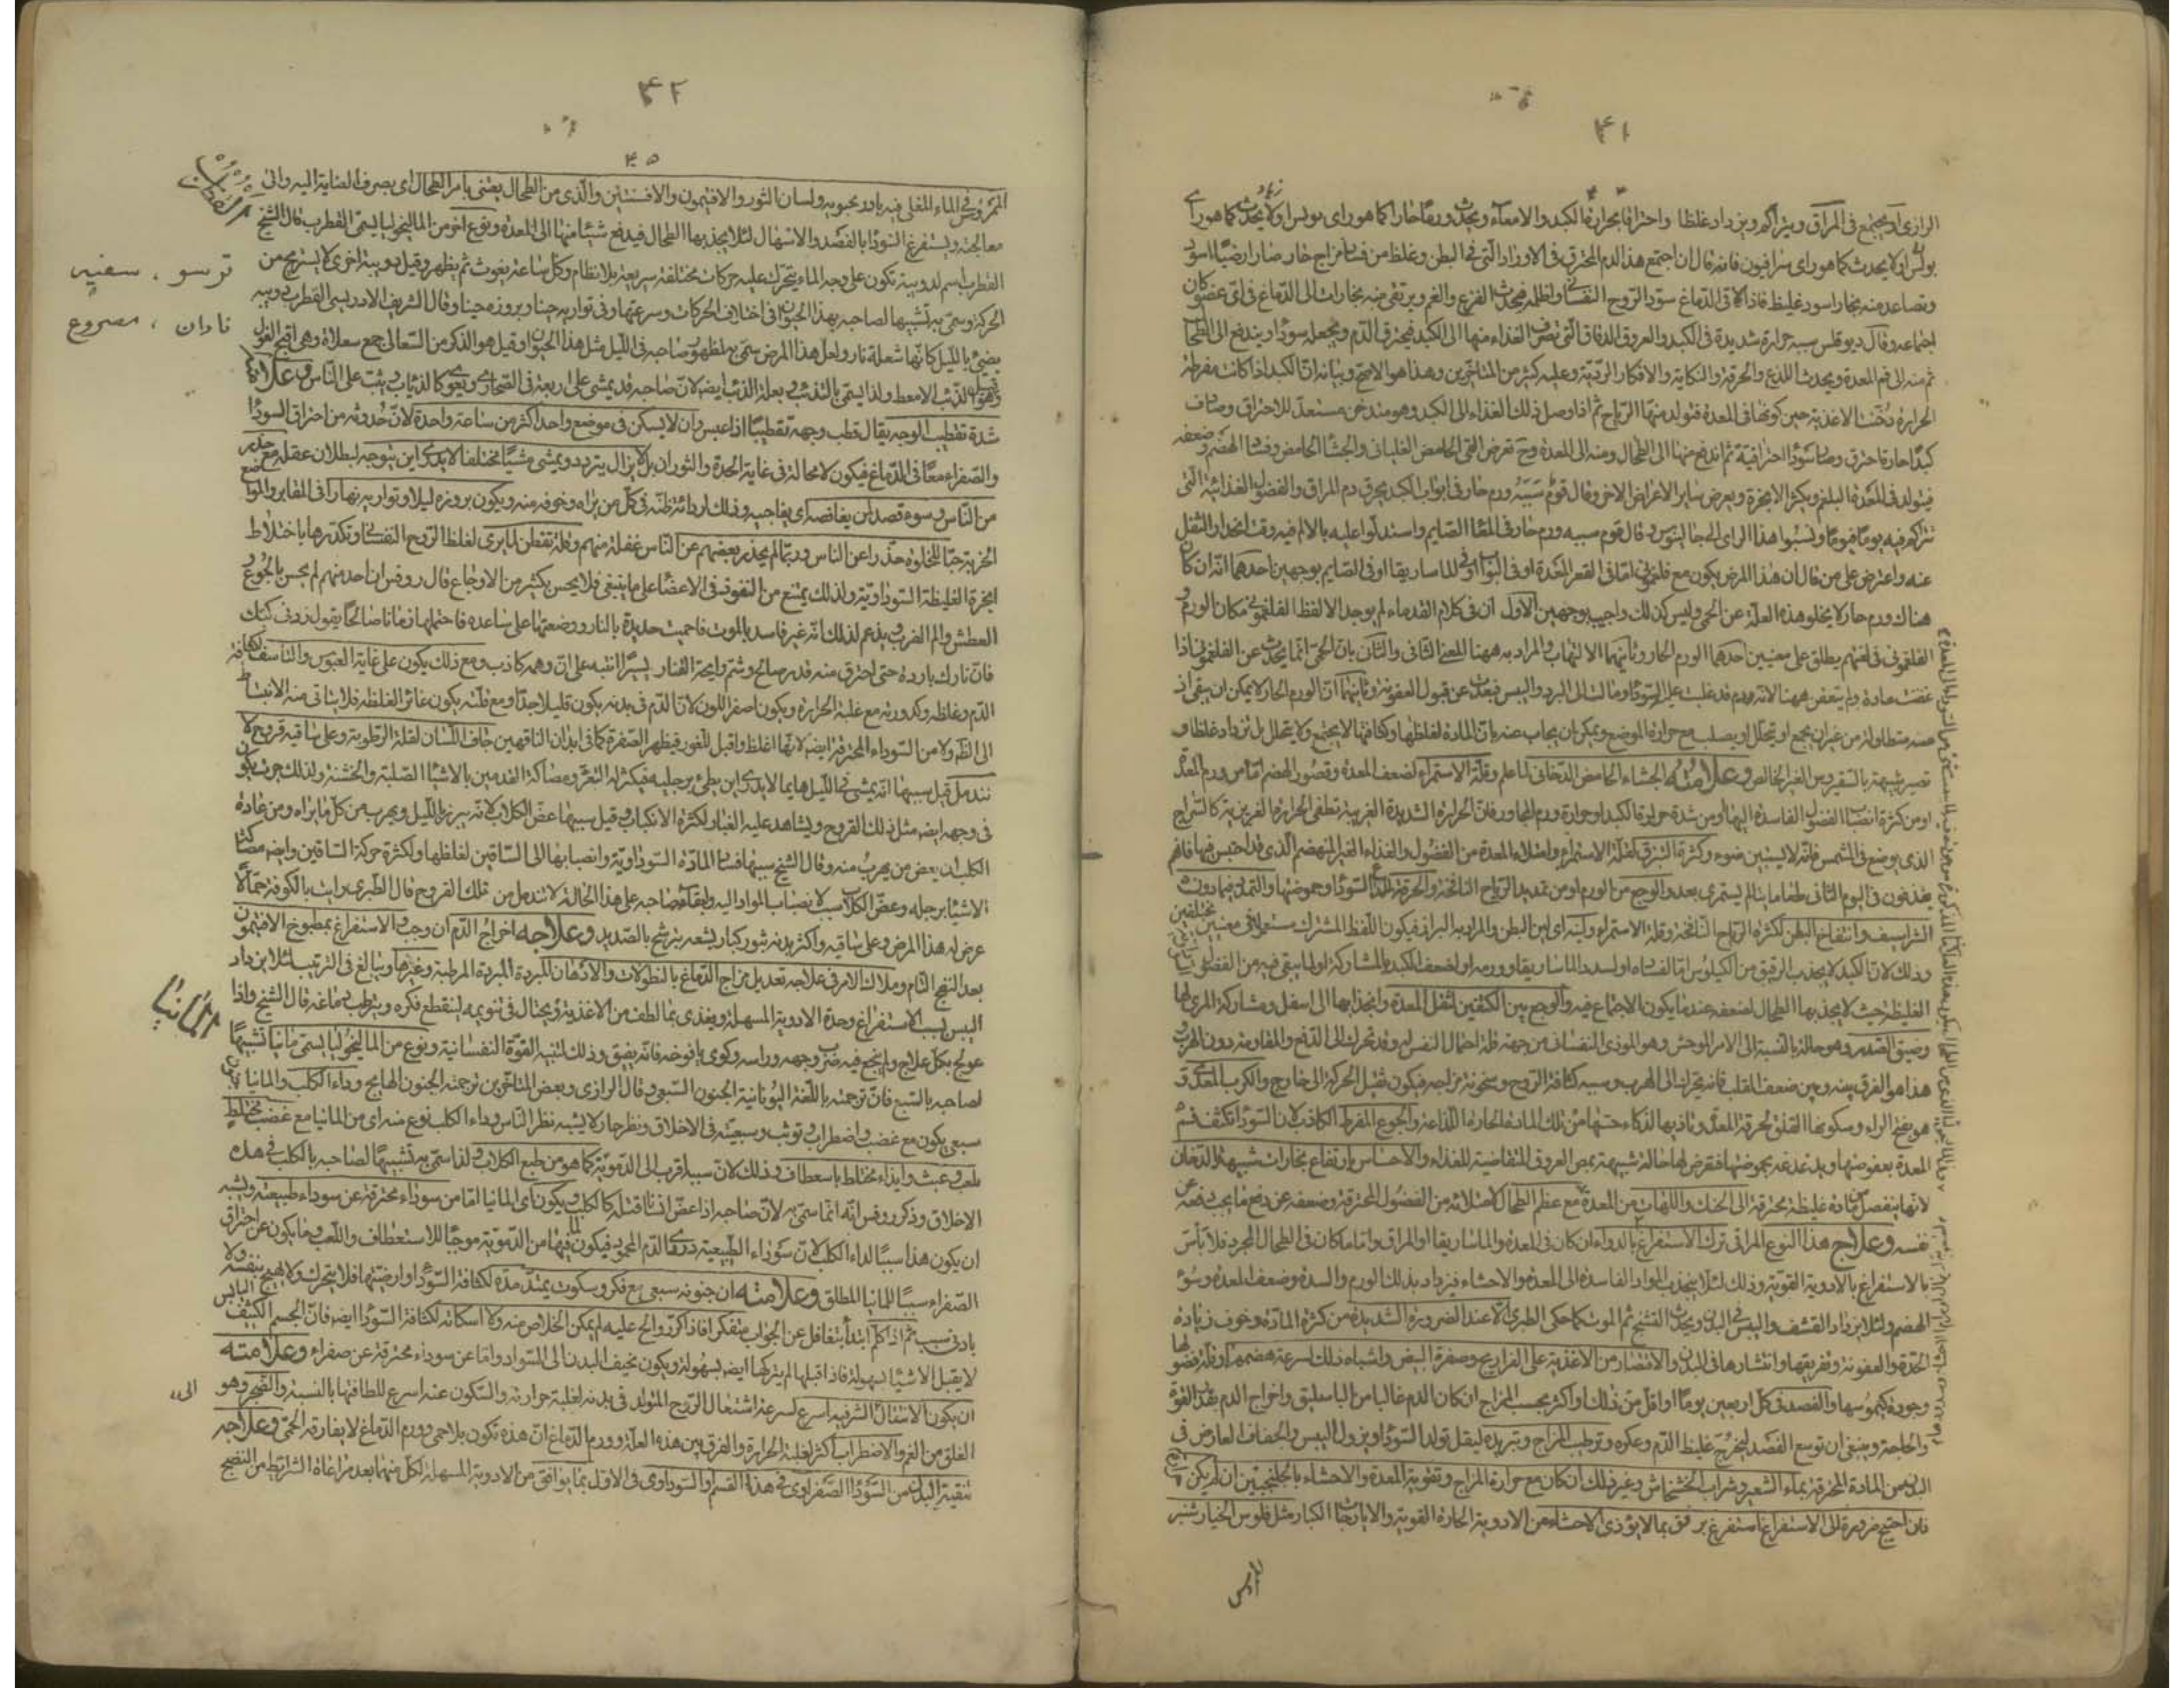 ۴۱
الرازى او يجتمع فى المراق ويتراكم ويزداد غلظا واحتراقا بحرارة الكبد والامعاء ويحدث ورما حارا كما هو راى بولس او لا يحدث كما هو راى
بولس او لا يحدث كما هو راى سرافيون فانه قال ان اجتمع هذا الدم المحترق فى الاوراد التى فى البطن وغلظ من فساد مزاج حار صار ارضيا اسود
وتصاعد منه بخار اسود غليظ فاذا لاقى الدماغ سود الروح النفسانى واظلمه فيحدث الفزع والغم ويرتقى منه بخارات الى الدماغ فى اى عضو كان
اجتماعه وقال ديوقلس سببه حرارة شديدة فى الكبد والعروق الدقاق التى تصرف الغذاء منها الى الكبد فيحترق الدم ويجعله سودا ويندفع الى الطحال
ثم منه الى فم المعدة ويحدث اللذع والحرقة والنكاية والافكار الردية وعليه كثير من المتاخرين وهذا هو الاصح وبيانه ان الكبد اذا كانت مفرطة
الحرارة دخنت الاغذية حين كونها فى المعدة فتولد منها الرياح ثم اذا وصل ذلك الغذاء الى الكبد وهو متدخن مستعد للاحتراق وصادف
كبدا حارة احترق وصار سودا احتراقية ثم اندفع منها الى الطحال ومنه الى المعدة وح تعرض القى الحامض الغليانى والجشا الحامض وفساد الهضم وضعفه
فيتولد فى المعدة البلغم ويكثر الابخرة ويعرض ساير الاعراض الاخر وقال قوم سببه ورم حار فى ابواب الكبد يحرق دم المراق والفضول الغذائية التى
تتراكم فيه يوما فيوما ونسبوا هذا الراى الى جالينوس وقال قوم سببه ورم حار فى المعا الصايم واستدلوا عليه بالالم فيه وقت انحدار الثقل
عنه واعترض على من قال ان هذا المرض يكون مع فلغمونى اما فى القعر المعدة او فى البواب او فى الماساريقا او فى الصايم بوجهين احدهما انه ان كان
هناك ورم حار لا يخلو هذه العلة عن الحمى وليس كذلك واجيب بوجهين الاول ان فى كلام القدماء لم يوجد الا لفظ الفلغمونى مكان الورم و
الفلغمونى فى لغتهم يطلق على معنيين احدهما الورم الحار وثانيهما الالتهاب والمراد به ههنا المعنى الثانى والثانى بان الحمى انما يحدث عن الفلغمونى اذا
عفنت مادة ولم يتعفن ههنا لانه ورم قد غلب عليه السودا ومالت الى البرد واليبس فبعدت عن قبول العفونة وثانيهما ان الورم الحار لا يمكن ان يبقى
مدة متطاولة من غير ان يجمع او يتحلل او يصلب مع حرارة الموضع ويمكن ان يجاب عنه بان المادة لغلظها وكثافتها لا يجتمع ولا يتحلل بل يزداد غلظا و
تصير شبيهة بالسقيروس الغير الخالص وعلامته الجشاء الحامض الدخانى لما علم وقلة الاستمراء لضعف المعدة وقصور الهضم اما من ورم المعدة
او من كثرة انصباب الفضول الفاسدة اليها او من شدة حرارة الكبد او حرارة ورم المجاور فان الحرارة الشديدة الغريبة تطفى الحرارة الغريزية كالسراج
الذى يوضع فى الشمس فانه لا يستبين ضوءه وكثرة البزاق لقلة الاستمراء وامتلاء المعدة من الفضول والغذاء الغير المنهضم الذى قد احتبس فيها فانهم
يقذفون فى اليوم الثانى طعاما ينالم يستمرى بعد والوجع من الورم او من تمديد الرياح النافخة والحرقة للذع السودا وحموضتها والتمدد فيما دون
الشراسيف وانتفاخ البطن لكثرة الرياح النافخة وقلة الاستمراء ولينه اى لين البطن والمراد به البراز فيكون اللفظ المشترك مستعملا فى معنيين مختلفين
وذلك لان الكبد لا يجذب الرقيق من الكيلوس اما لفساده او لسدد الماساريقا وورمه او لضعف الكبد بالمشاركة او لما بقى فيه من الفضول
الغليظة حيث لا يجذبها الطحال لضعفه عند ما يكون الاجتماع فيه والوجع بين الكتفين لثقل المعدة وانجذابها الى اسفل ومشاركة المرى لها
وضيق الصدر وهو حالة بالنسبة الى الامر الموحش وهو الموذى النفسانى من جهة قلة احتمال النفس له وقد تتحرك الى الدفع والمقاومة دون الهرب
هذا هو الفرق بينه وبين ضعف القلب فانه يتحرك الى الهرب وسببه كثافة الروح وسخونة مزاجه فيكون تقبل الحركة الى خارج والكرب المعدى
المعدة بعفوصتها ويلذعه بحموضتها فتعرض لها حالة شبيهة بمص العروق المتقاضية للغذاء والاحساس بارتفاع بخارات شبيهة بالدخان
لانها ينفصل من مادة غليظة محترقة الى الحنك واللهات من المعدة مع عظم الطحال لامتلائه من الفضول المحترقة وضعفه عن دفع ما يجب دفعه عن
نفسه وعلاج هذا النوع المراقى ترك الاستفراغ بالدواء ان كان فى المعدة والماساريقا او المراق واما ما كان فى الطحال المجرد فلا باس
بالاستفراغ بالادوية القوية وذلك لئلا ينجذب المواد الفاسدة الى المعدة والاحشاء فيزداد بذلك الورم والسدة وضعف المعدة وسوء
الهضم ولئلا يزداد القشف واليبس فى البدن ويحدث التشنج ثم الموت كما حكى الطبرى الا عند الضرورة الشديدة من كثرة المادة وخوف زيادة
الحدة والعفونة وتفريقها وانتشارها فى البدن والاقتصار من الاغذية على الفراريج وصفرة البيض واشباه ذلك لسرعة هضمها وقلة فضولها
وجودة كيموسها والفصد فى كل اربعين يوما او اقل من ذلك او اكثر بحسب المزاج ان كان الدم غالبا من الباسليق واخراج الدم بقدر القوة
والحاجة وينبغى ان توسع الفصد ليخرج غليظ الدم وعكره وترطيب المزاج وتبريده ليقل تولد السودا ويزول اليبس والجفاف العارض فى
البدن من المادة المحترقة بماء الشعير وشراب الخشخاش وغير ذلك ان كان مع حرارة المزاج وتقوية المعدة والاحشاء بالجلنجبين ان لم يكن
فان احتيج ضرورة الى الاستفراغ استفرغ برفق بما لا يؤذى الاحشاء من الادوية الحارة القوية والايارجات الكبار مثل فلوس الخيار شنبر
۴۲
۴۵
الممروس فى الماء المغلى فيه بادرنجبويه ولسان الثور والافتيمون والافسنتين والذى من الطحال يعتنى بامر الطحال اى يصرف العناية اليه والى
معالجته ويستفرغ السودا بالفصد والاسهال لئلا يجذبها الطحال فيدفع شيئا منها الى المعدة ونوع اخر من الماليخوليا يسمى القطرب قال الشيخ
القطرب
القطرب اسم لدويبة تكون على وجه الماء يتحرك عليه حركات مختلفة سريعة بلا نظام وكل ساعة يغوص ثم يظهر وقيل دويبة اخرى لا يستريح من
ترسو ، سفيه
الحركة وسمى به تشبيها لصاحبه بهذا الحيوان فى اختلاف الحركات وسرعتها وفى تواريه حينا وبروزه حينا وقال الشريف الادريسى القطرب دويبة
نادان ، مصروع
يضىء بالليل كانها شعلة نار ولعل هذا المرض سمى به لظهور صاحبه فى الليل مثل هذا الحيوان وقيل هو الذكر من السعالى جمع سعلاة وهى اقبح الغول
وقيل هو الذئب الامعط ولذا يسمى بالتذئب وبعلة الذئب ايضه لان صاحبه قد يمشى على اربعة فى الصحارى ويعوى كالذئاب ويثب على الناس وعلاماته
شدة تقطيب الوجه يقال قطب وجهه تقطيبا اذا عبس وان لا يسكن فى موضع واحد اكثر من ساعة واحدة لان حدوثه من احتراق السودا
والصفراء معا فى الدماغ فيكون لا محالة فى غاية الحدة والثوران بل لا يزال يتردد ويمشى مشيا مختلفا لا يدرى اين يتوجه لبطلان عقله مع حذر
من الناس وسوء قصد لمن يغافصه اى يفاجيه وذلك لرداءة ظنه فى كل من يراه وخوفه منه ويكون بروزه ليلا وتواريه نهارا فى المقابر والمواضع
الخربة حبا للخلوة وحذرا عن الناس وربما لم يحذر بعضهم عن الناس غفلة منهم وقلة تفطن لما يرى لغلظ الروح النفسانى وتكدرها باختلاط
ابخرة الغليظة السوداوية ولذلك يمتنع من النفوذ فى الاعضا على ما ينبغى فلا يحس بكثير من الاوجاع قال روفس ان احد منهم لم يحس بالجوع و
العطش والم الضرب ويزعم لذلك انه غير فاسد بالموت فاحميت حديدة بالنار ووضعتها على ساعده فاحتملها زمانا صالحا يقول زدنى كيك
فان نارك باردة حتى احترق منه قدر صالح وشم رايحة القتار يسيرا انتبه على ان وهمه كاذب ومع ذلك يكون على غاية العبوس والتاسف لكثافة
الدم وغلظه وكدورته مع غلبة الحرارة ويكون اصفر اللون لان الدم فى بدنه يكون قليلا جدا ومع قلته يكون غائر الغلظه فلا يتاتى منه الانبساط
الى الظهر ولا من السوداء المحترقة ايضه لانها اغلظ واقبل للغور فيظهر الصفرة كما فى ابدان الناقهين جاف اللسان لقلة الرطوبة وعلى ساقيه قروح لا
تندمل قيل سببها انه يمشى فى الليل هايما لا يدرى اين يطى برجليه فيكثر له التعثر ومصاكة القدمين بالاشيا الصلبة والخشنة ولذلك يكون
فى وجهه ايضه مثل ذلك القروح ويشاهد عليه الغبار لكثرة الانكباب وقيل سببها عض الكلاب لانه يبرز بالليل ويهرب من كل ما يراه ومن عادة
الكلب ان يعض من يهرب منه وقال الشيخ سببها فساد المادة السوداوية وانصبابها الى الساقين لغلظها ولكثرة حركة الساقين وايضه مصاكة
الاشيا برجله وعض الكلاب سبب لانصباب المواد اليه ولبقاء صاحبه على هذا الحالة لا تندمل من تلك القروح قال الطبرى رايت بالكوفة حمالا
عرض له هذا المرض وعلى ساقيه واكثر بدنه بثور كبار بشعه يترشح بالصديد وعلاجه اخراج الدم ان وجب والاستفراغ بمطبوخ الافتيمون
بعد النضج التام وملاك الامر فى علاجه تعديل مزاج الدماغ بالنطولات والادهان المبردة المبردة المرطبة وغيرها ويبالغ فى الترتيب لئلا يزداد
اليبس بسبب الاستفراغ وحدة الادوية المسهلة ويغذى بما لطف من الاغذية ويحتال فى تنويمه لينقطع فكره ويترطب دماغه قال الشيخ واذا
المانيا
عولج بكل علاج ولم ينجع فيه ضرب وجهه وراسه وكوى يافوخه فانه يفيق وذلك لتنبه القوة النفسانية ونوع من الماليخوليا يسمى مانيا تشبيها
لصاحبه بالسبع فان ترجمته باللغة اليونانية الجنون السبعى وقال الرازى وبعض المتاخرين ترجمته الجنون الهايج وداء الكلب والمانيا
سبعى يكون مع غضب واضطراب وتوثب وسبعية فى الاخلاق ونظر حار لا يشبه نظر الناس وداء الكلب نوع منه اى من المانيا مع غضب مختلط
بلعب وعبث وايذاء مختلط باستعطاف وذلك لان سببه اقرب الى الدموية كما هو من طبع الكلاب ولذا سمى به تشبيها لصاحبه بالكلب فى هذه
الاخلاق وذكر روفس انه انما سمى به لان صاحبه اذا عض انسانا قتله كالكلب ويكون اى المانيا اما من سوداء محترقة عن سوداء طبيعية ويشبه
ان يكون هذا سببا لداء الكلب لان سوداء الطبيعية دردى الدم المحمود فيكون فيها من الدموية موجبا للاستعطاف واللعب وما يكون عن احتراق
الصفراء سببا للمانيا المطلق وعلامته ان جنونه سبعى مع فكر وسكوت يمتد مدة لكثافة السودا وارضيتها فلا يتحرك ولا يهيج بنفسه ولا
بادنى سبب ثم اذا كلم ابتدأ يتغافل عن الجواب متفكرا فاذا كرر والح عليه لم يمكن الخلاص منه ولا اسكاته لكثافة السودا ايضه فان الجسم الكثيف اليابس
لا يقبل الاشيا بسهولة فاذا قبلها لم يتركها ايضه بسهولة ويكون نحيف البدن الى السواد واما عن سوداء محترقة عن صفراء وعلامته
ان يكون الانتقال الشر فيه اسرع لسرعة اشتعال الروح المتولد فى بدنه لغلبة حرارته والسكون عنه اسرع للطافتها بالنسبة والضجر وهو
القلق من الغم والاضطراب اكثر لغلبة الحرارة والفرق بين هذه العلة وورم الدماغ ان هذه تكون بلا حمى وورم الدماغ لا يفارقه الحمى وعلاجه
تنقية البدن من السودا الصفراوى فى هذا القسم والسوداوى فى الاول بما يوافق من الادوية المسهلة لكل منهما بعد مراعاة الشرايط من النضج